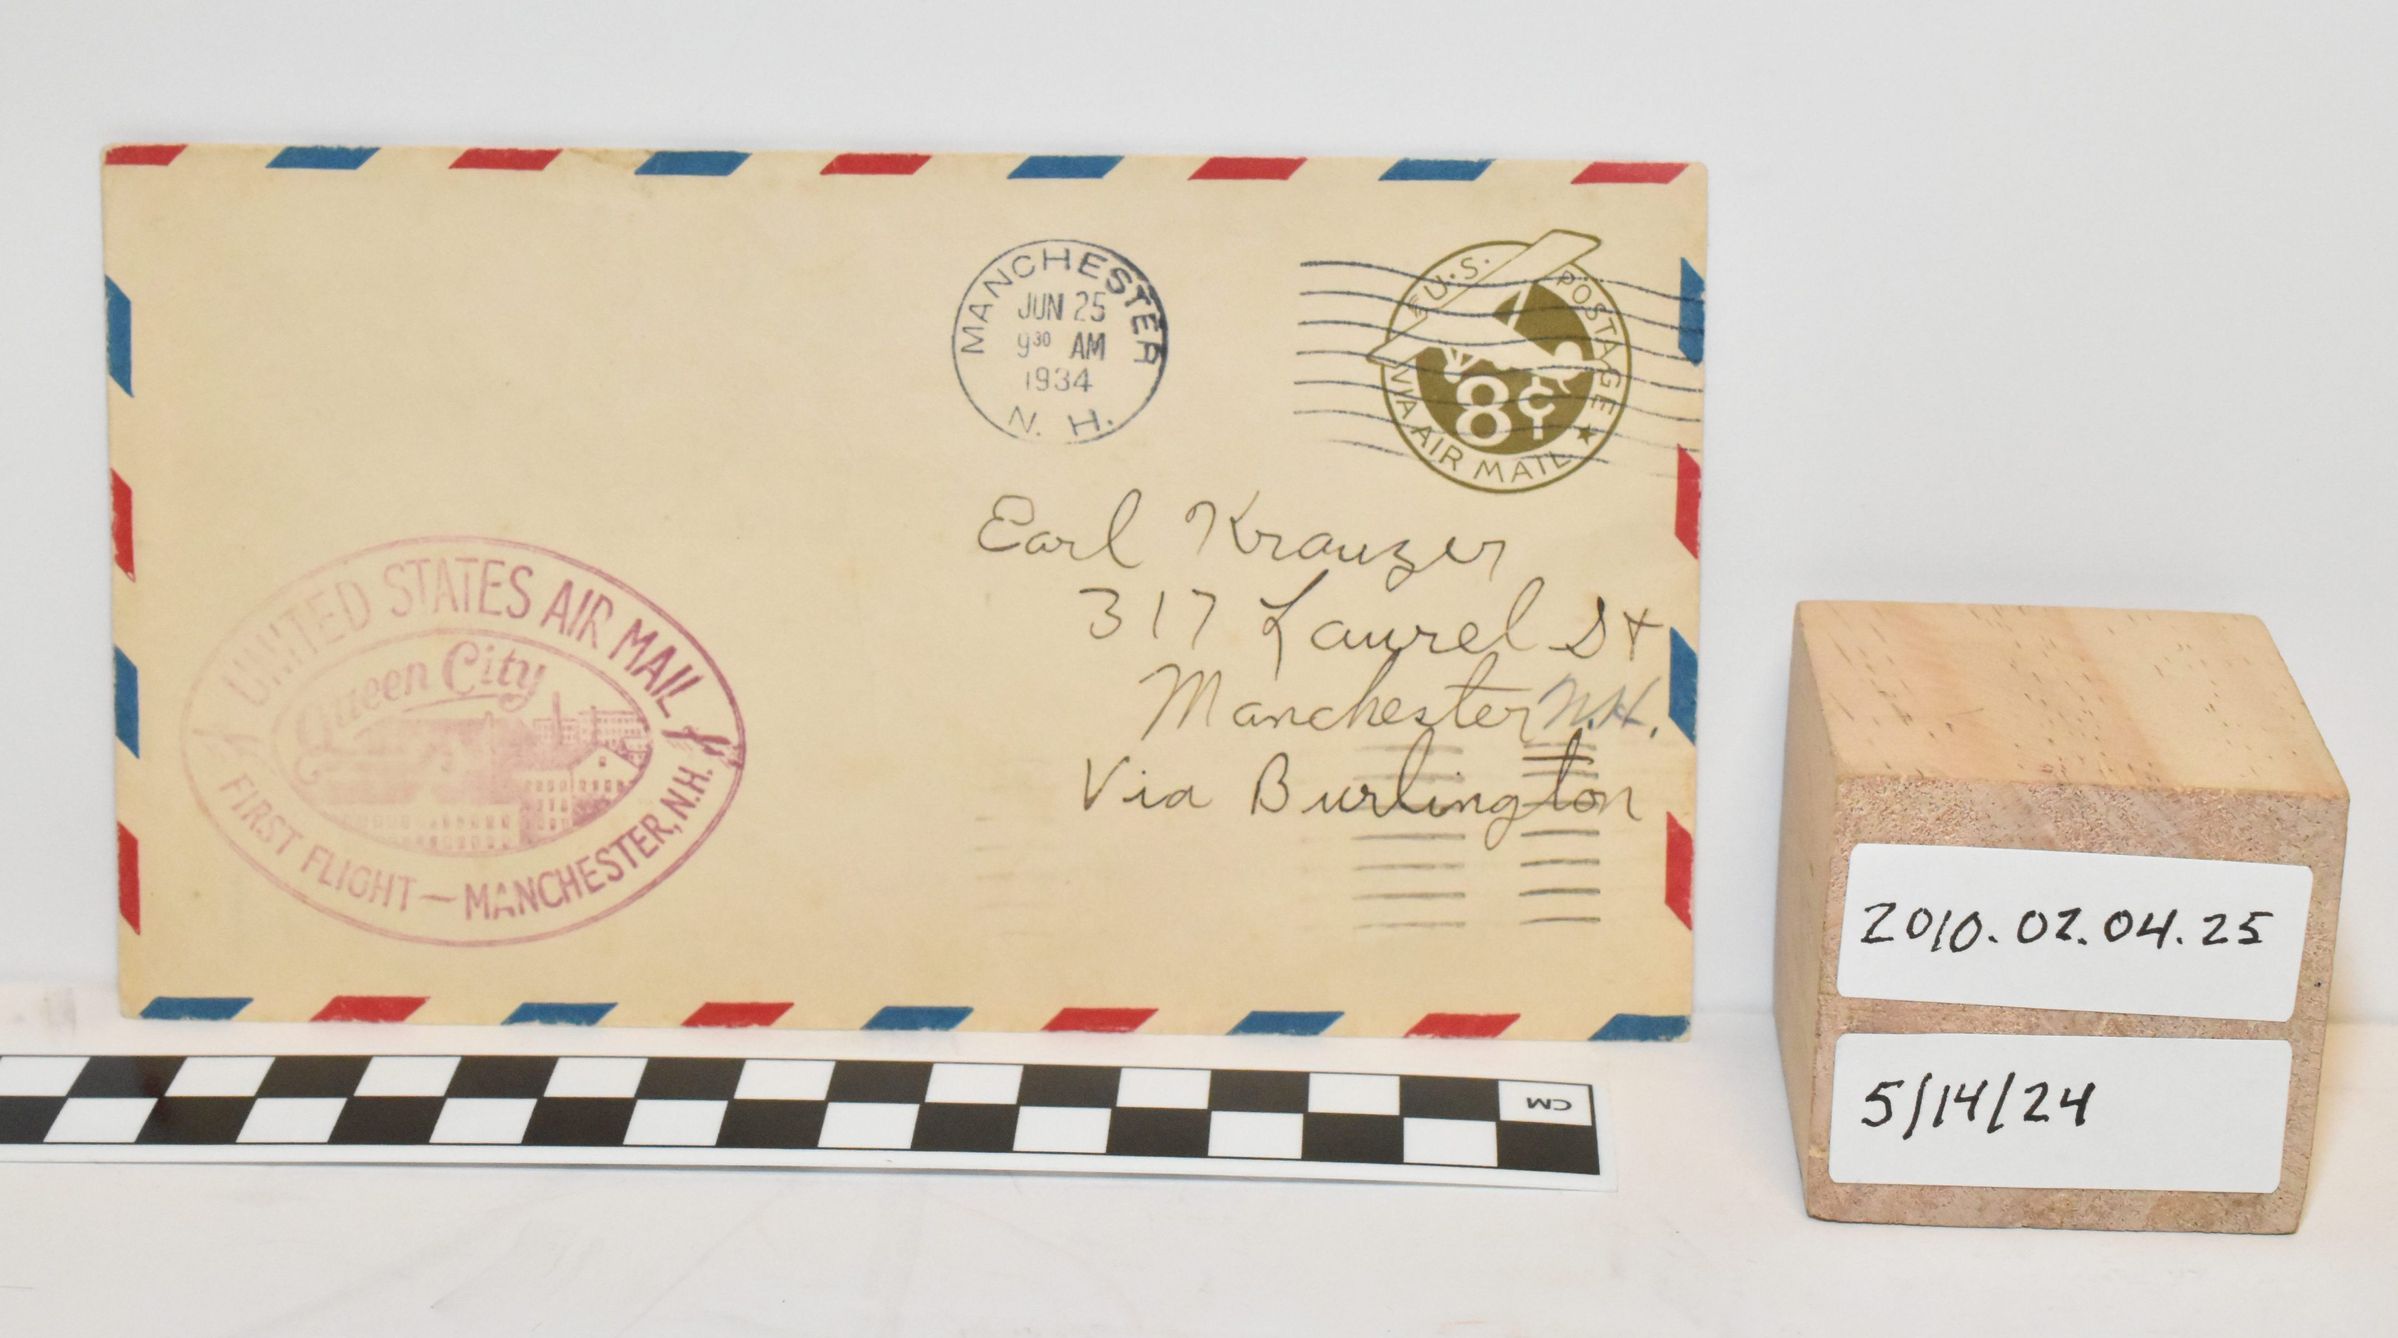 MANCHESTER
JUN 25
9³⁰ AM
1934
N. H.
U.S. POSTAGE
8¢
VIA AIR MAIL
Earl Krauzer
317 Laurel St
Manchester N.H.
Via Burlington
UNITED STATES AIR MAIL
Queen City
FIRST FLIGHT — MANCHESTER, N.H.
CM
2010.02.04.25
5/14/24